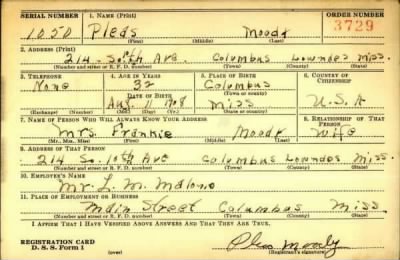 SERIAL NUMBER 1. NAME (Print) ORDER NUMBER
1050 Pleas Moody 3729
(First) (Middle) (Last)
2. ADDRESS (Print)
214 So. 10th Ave Columbus Lowndes Miss.
(Number and street or R. F. D. number) (Town) (County) (State)
3. TELEPHONE 4. AGE IN YEARS 5. PLACE OF BIRTH 6. COUNTRY OF CITIZENSHIP
None 32 Columbus
DATE OF BIRTH (Town or county)
Aug. 11 1908 Miss U.S.A
(Mo.) (Day) (Yr.) (State or country)
7. NAME OF PERSON WHO WILL ALWAYS KNOW YOUR ADDRESS 8. RELATIONSHIP OF THAT PERSON
Mrs. Frankie Moody Wife
(Mr., Mrs., Miss) (First) (Middle) (Last)
9. ADDRESS OF THAT PERSON
214 So. 10th Ave Columbus Lowndes Miss.
(Number and street or R. F. D. number) (Town) (County) (State)
10. EMPLOYER'S NAME
Mr. L. M. Malone
11. PLACE OF EMPLOYMENT OR BUSINESS
Main Street Columbus Miss.
(Number and street or R. F. D. number) (Town) (County) (State)
I AFFIRM THAT I HAVE VERIFIED ABOVE ANSWERS AND THAT THEY ARE TRUE.
REGISTRATION CARD
D. S. S. Form 1 Pleas Moody
(Registrant's signature)